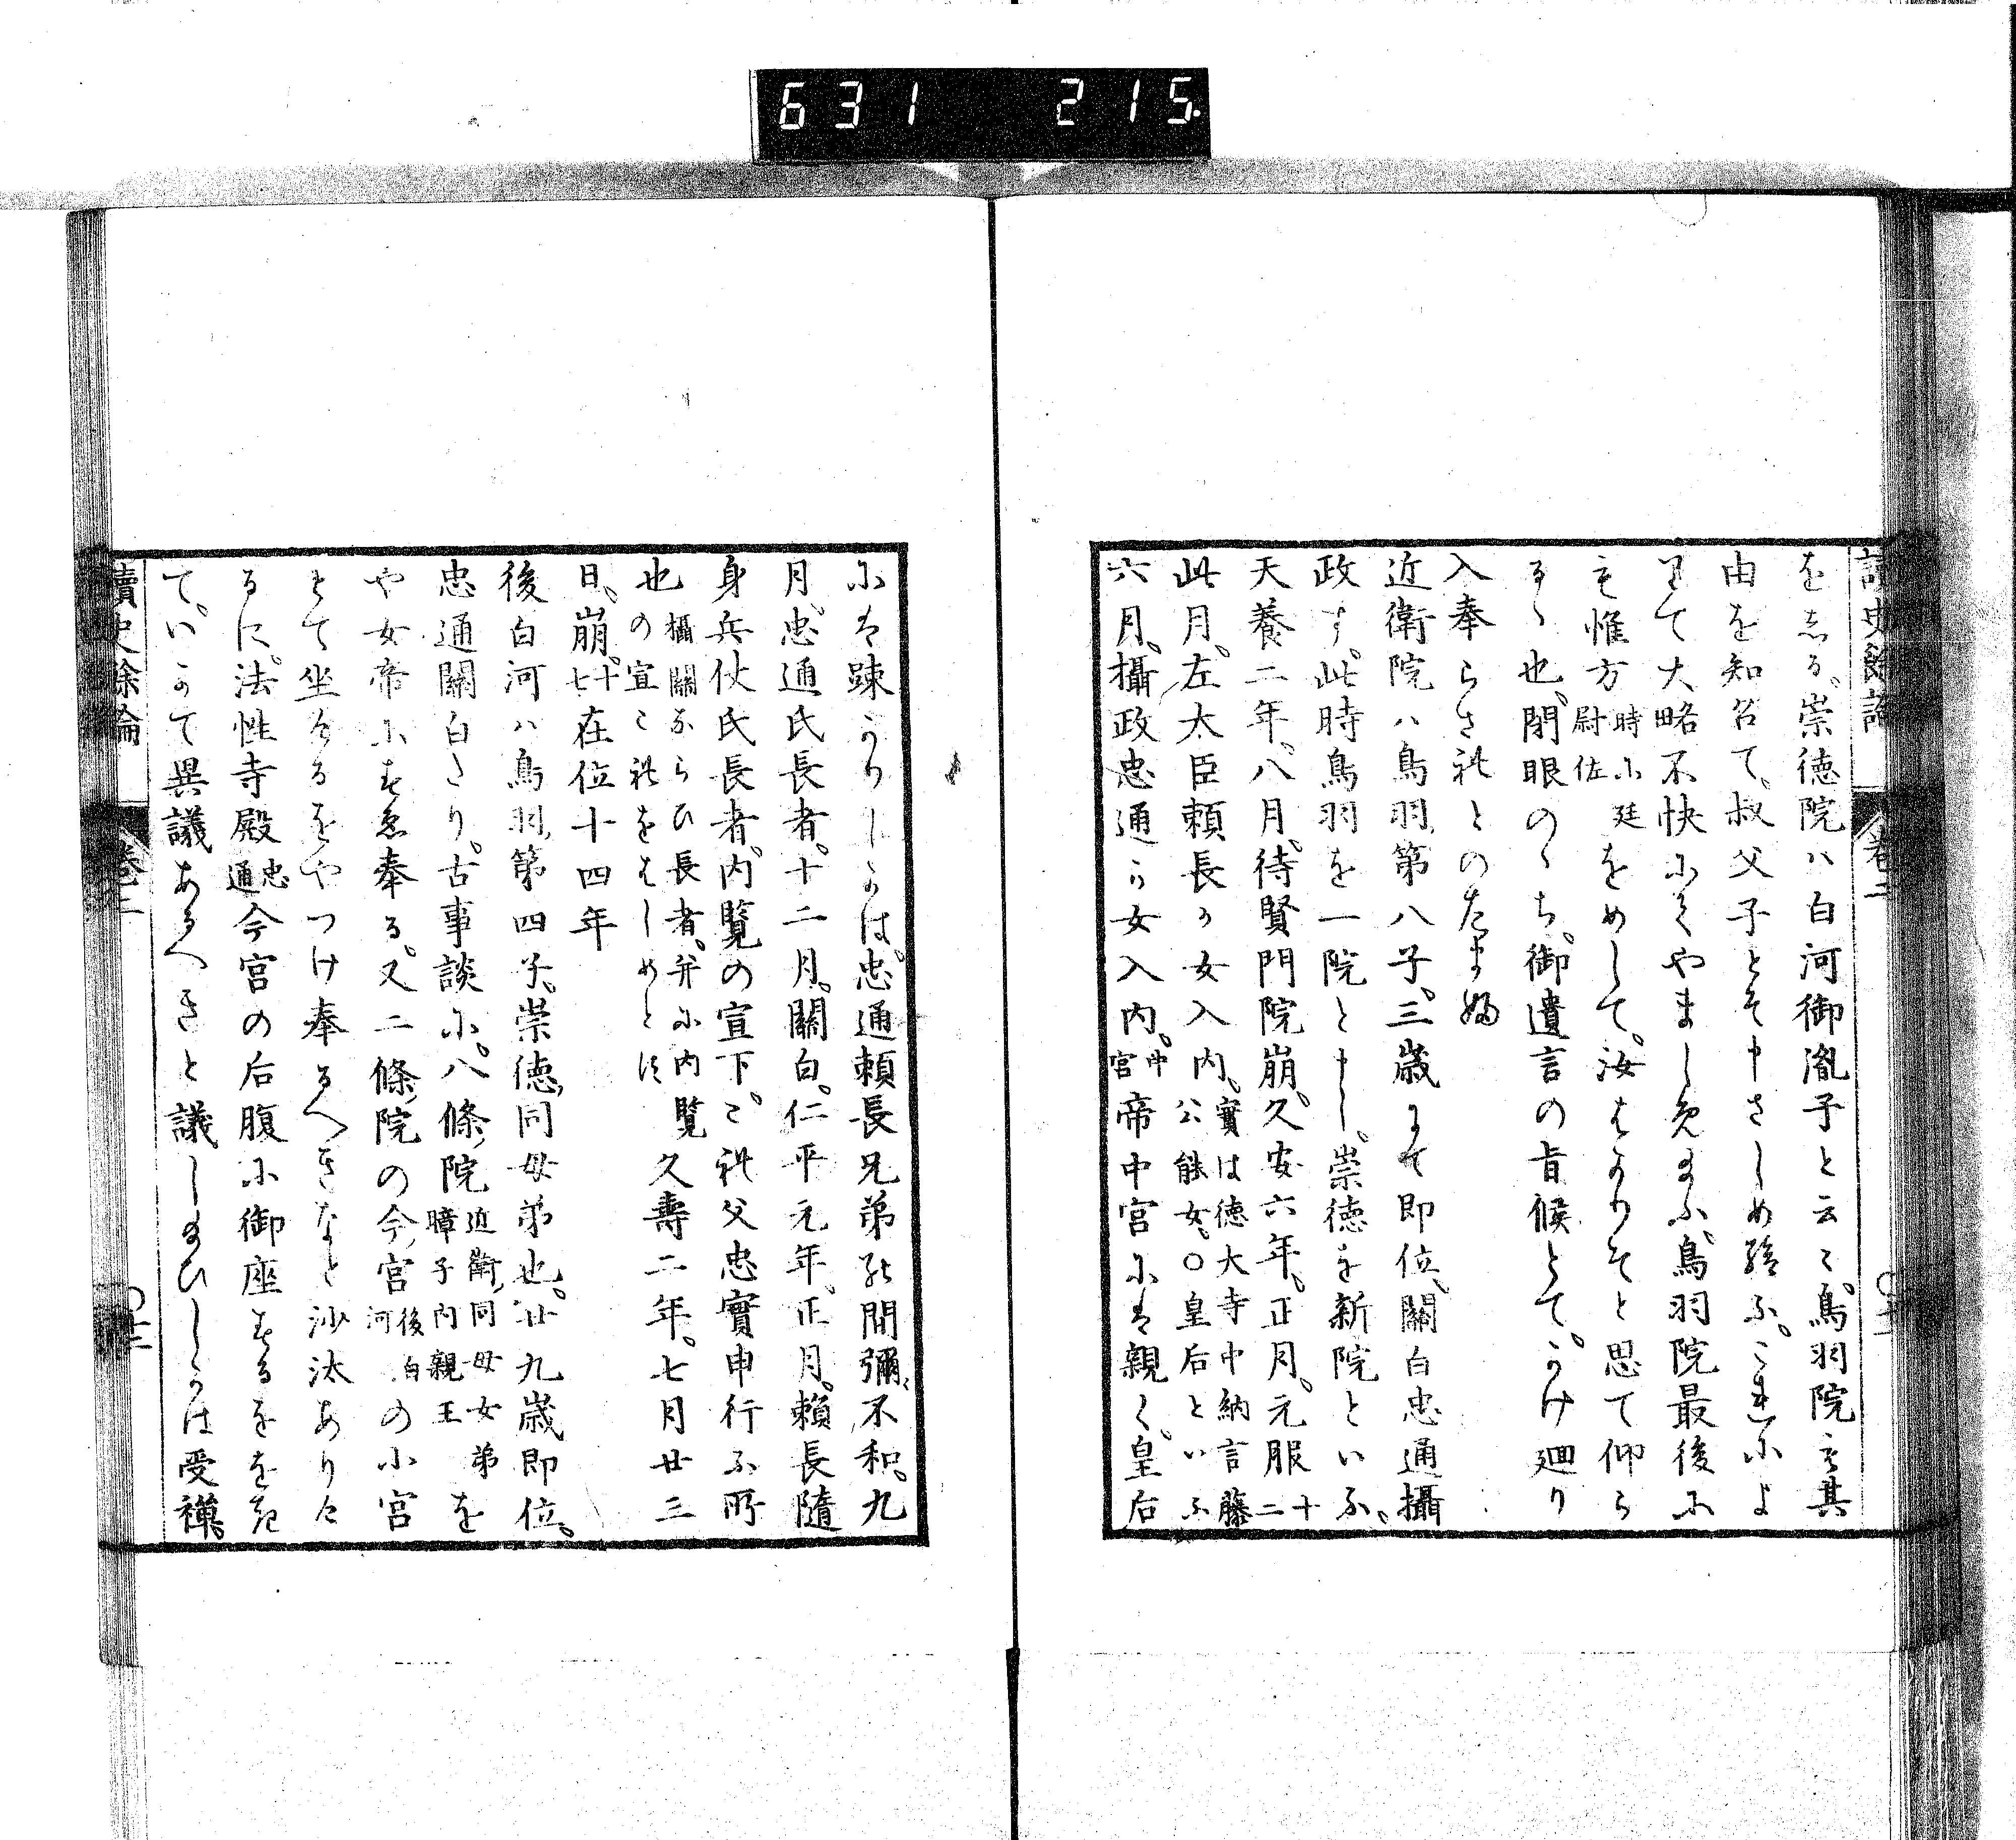 631 215.
讀史餘論 卷二
をしる。崇徳院ハ白河御胤子と云々。鳥羽院も其
由を知召て。叔父子とそ申さしめ給ふ。これによ
りて大略不快にてやましましき給ふ。鳥羽院最後に
も惟方時に廷尉佐をめして。汝はかりそと思て仰ら
るゝ也。閉眼のゝち。御遺言の旨候とて。かけ廻り
入奉らさ礼とのたまふ
近衛院ハ鳥羽第八子。三歳にて即位。關白忠通攝
政す。此時鳥羽を一院と申し。崇徳を新院といふ。
天養二年。八月。待賢門院崩。久安六年。正月。元服十二
此月。左大臣頼長か女入内。實は徳大寺中納言藤公能女。○皇后といふ
六月。攝政忠通か女入内。中宮帝中宮には親く。皇后
には疎かりしかは。忠通頼長兄弟の間彌不和。九
月。忠通氏長者。十二月。關白。仁平元年。正月。頼長隨
身兵仗氏長者。内覧の宣下。これ父忠實申行ふ所
也攝關ならひ長者。并に内覧の宣これをはしめとす久壽二年。七月廿三
日。崩。十七在位十四年
後白河ハ鳥羽第四子。崇徳同母弟也。廿九歳即位。
忠通關白たり。古事談に。八條院近衛同母女弟暲子内親王を
や女帝にすゑ奉る。又二條院の今宮後白河の小宮
とて坐するをやつけ奉るへきなと沙汰ありけ
るに。法性寺殿忠通今宮の后腹に御座するををき
て。いかて異議あるへきと議し給ひしかは受禪。
讀史餘論 卷二